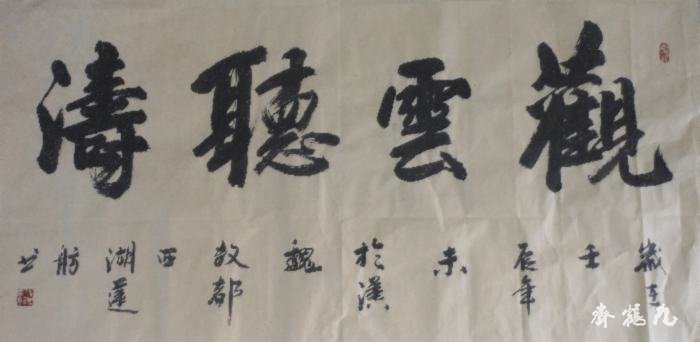 觀雲聽濤
歲在壬辰年末於漢魏故都西湖蓮舫書
九鶴齊